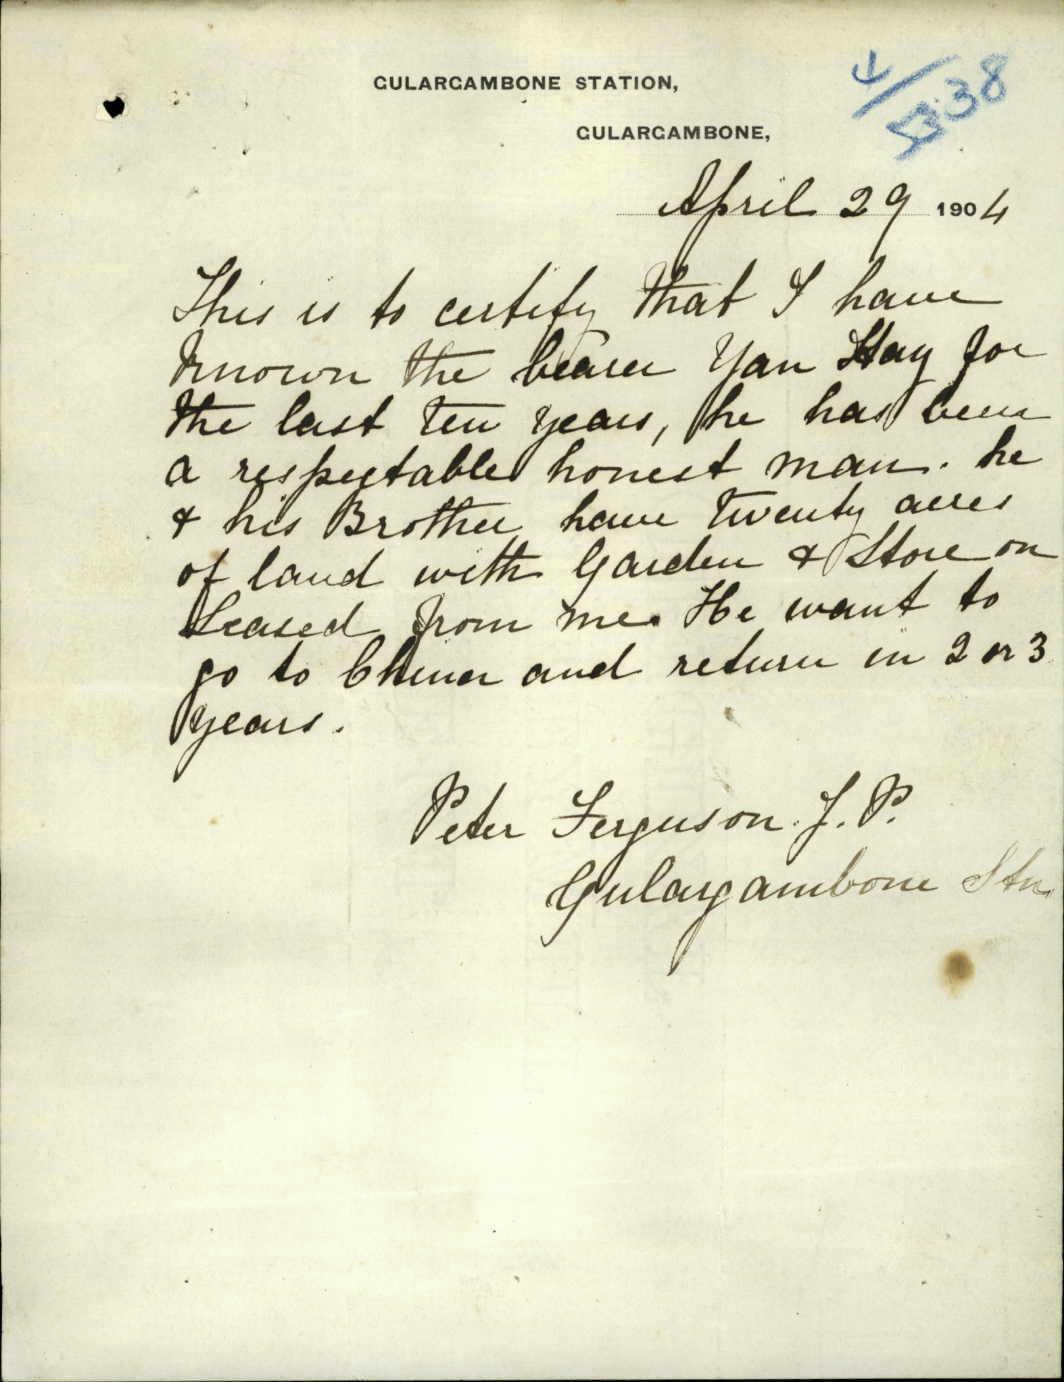 GULARGAMBONE STATION,
4/3338
GULARGAMBONE,
April 29 1904
This is to certify that I have
known the bearer Yan Hay for
the last ten years, he has been
a respectable honest man. he
& his Brother have twenty acres
of land with Garden & Store on
Leased from me. He want to
go to China and return in 2 or 3
years.
Peter Ferguson. J. P.
Gulargambone Stn.